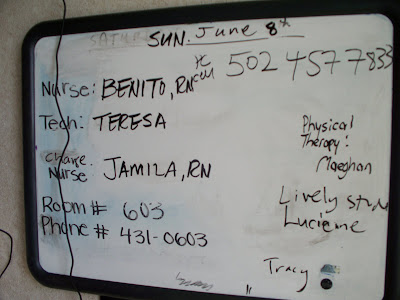 SUN. June 8th
cell 502 457 7833
Nurse: BENITO, RN
Tech: TERESA
Physical
Therapy:
Maeghan
Charge
Nurse: JAMILA, RN
Lively
Lucieme
Room# 603
Phone# 431-0603
Tracy